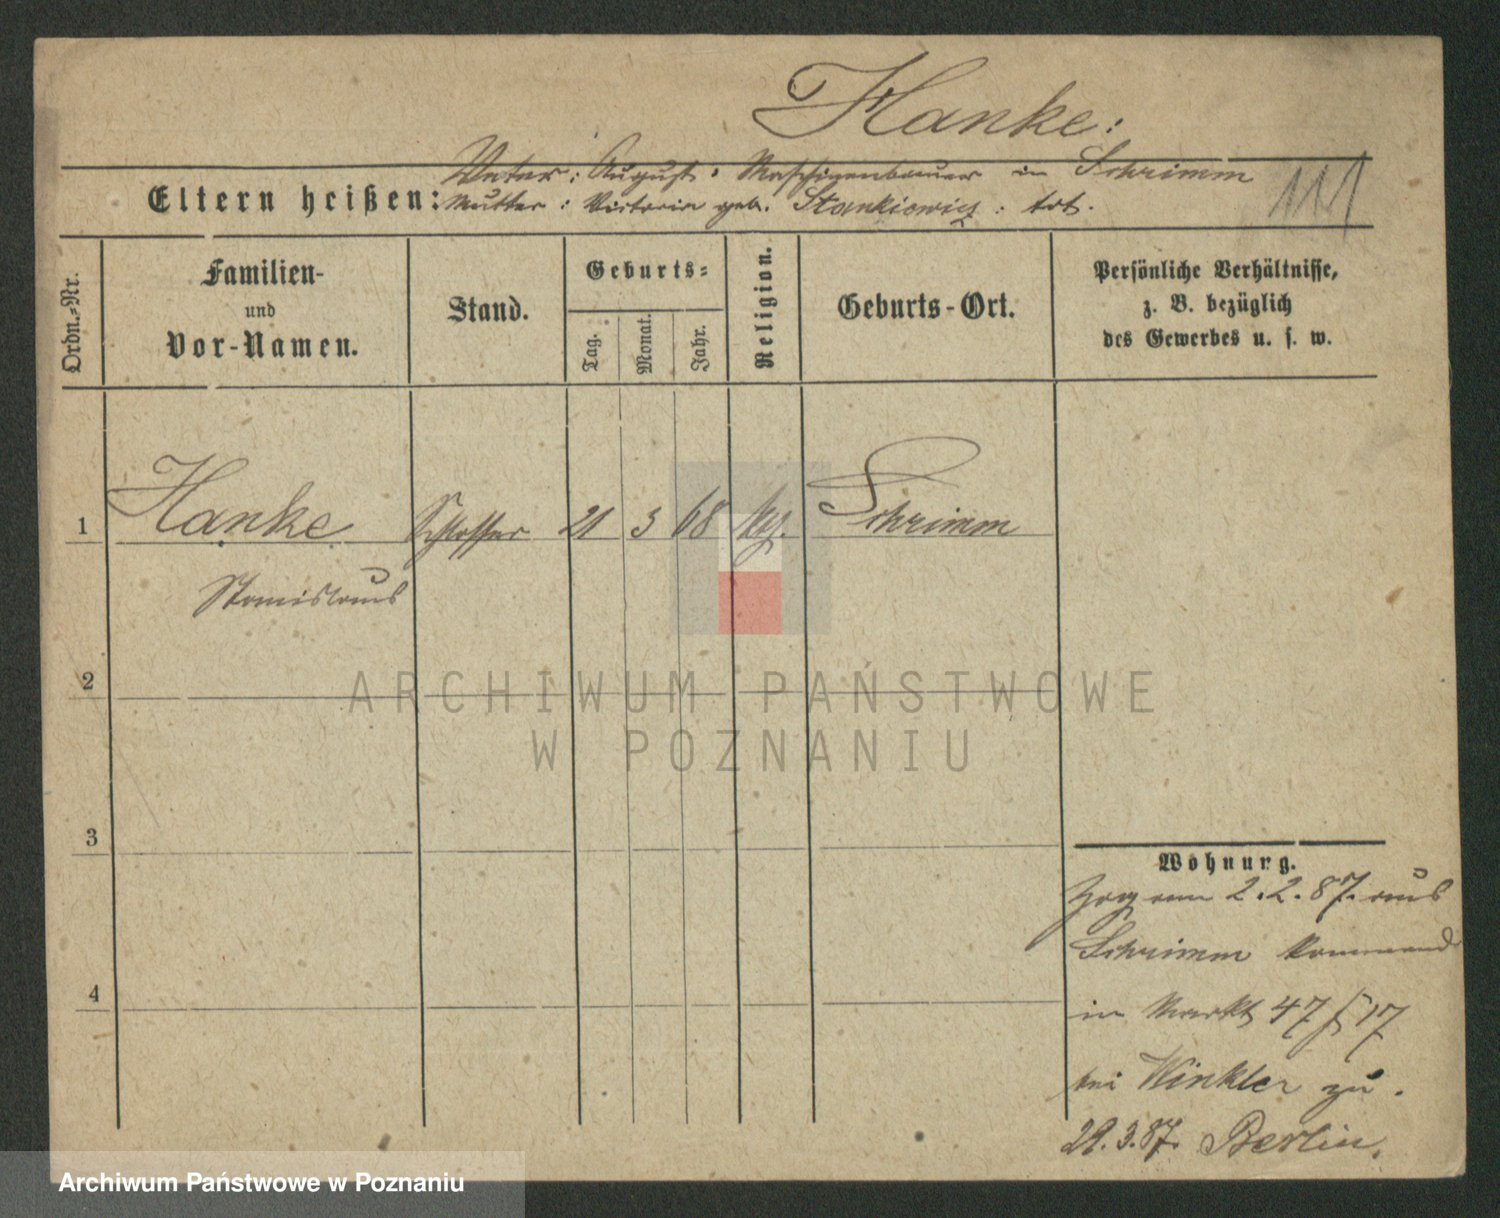 Hanke:
Vater: August: Maschinenbauer in Schrimm
Eltern heißen: Mutter: Victoria geb. Stankiewicz: tot.
Ordn.-Nr.
Familien-
und
Vor-Namen.
Stand.
Geburts-
Tag.
Monat.
Jahr.
Religion.
Geburts-Ort.
Persönliche Verhältnisse,
z. B. bezüglich
des Gewerbes u. s. w.
1 Hanke Schlosser 21 3 68 Schrimm
Stanislaus
2
ARCHIWUM PAŃSTWOWE
W POZNANIU
3
Wohnung.
Zog am 2.2.87. aus
Schrimm kommend
4
in Markt 47 17
bei Winkler zu.
29.3.87. Berlin.
Archiwum Państwowe w Poznaniu